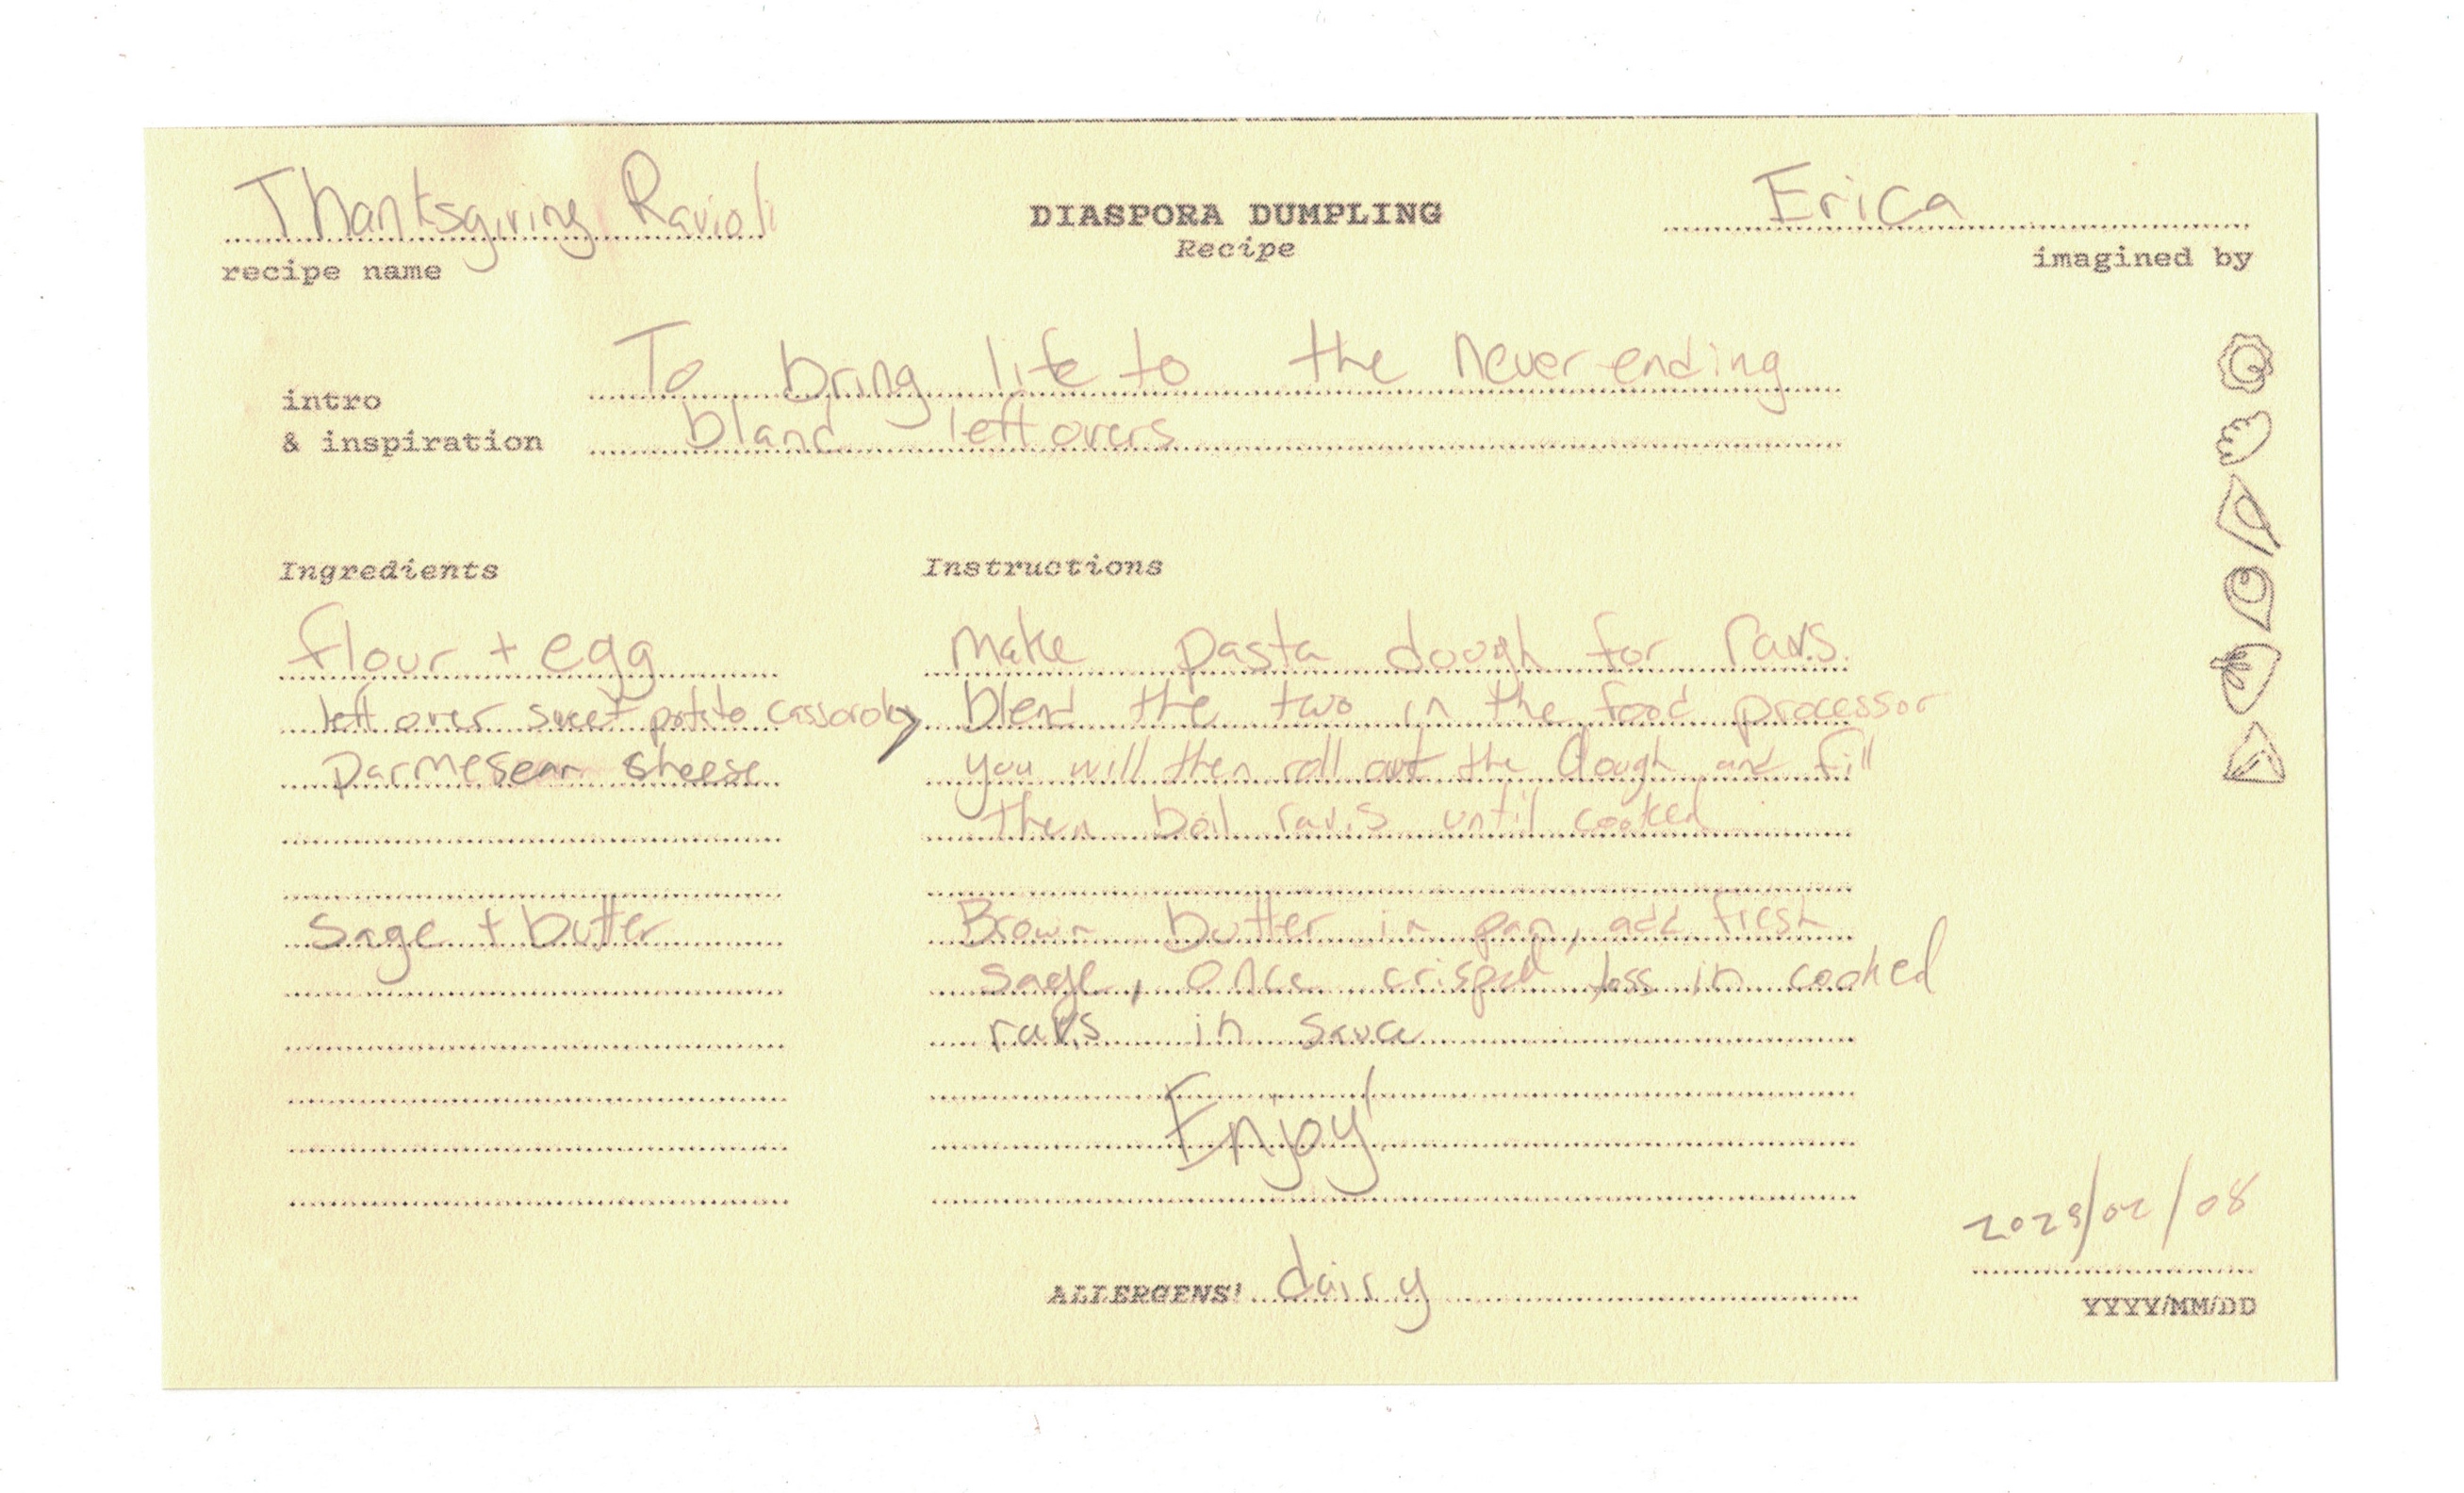 Thanksgiving Ravioli
DIASPORA DUMPLING
Recipe
Erica
recipe name
imagined by
To bring life to the never ending
intro
& inspiration
bland leftovers
Ingredients
Instructions
flour + egg
Make pasta dough for ravs.
left over sweet potato
blend the two in the food processor
parmesean cheese
you will then roll out the dough and fill
then boil ravis until cooked
Sage + butter
Brown butter in pan, add fresh
sage, once crisped toss in cooked
ravs in
Enjoy!
ALLERGENS! dairy
/02/08
YYYY/MM/DD